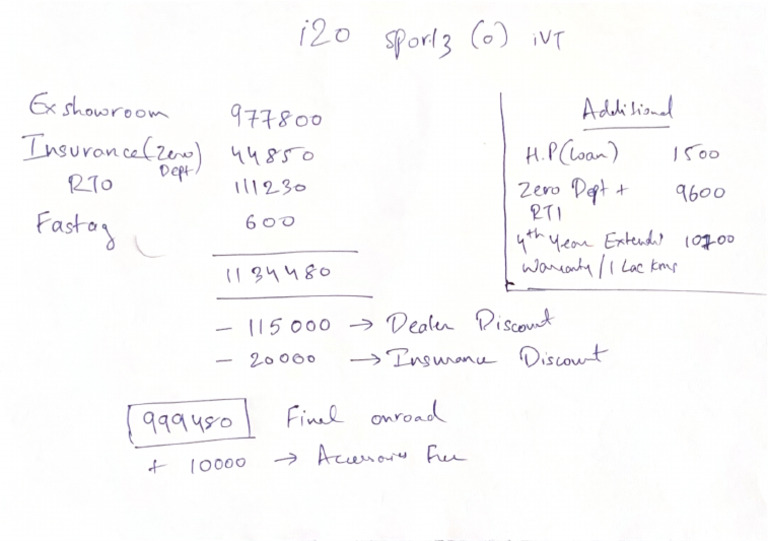 i20 sportz (o) iVT
Ex showroom 977800
Insurance (Zero Dept) 44850
RTO 111230
Fastag 600
1134480
- 115000 → Dealer Discount
- 20000 → Insurance Discount
999480 Final onroad
+ 10000 → Accessories Free
Additional
H.P (Loan) 1500
Zero Dept + 9600
RTI
4th Year Extended
Warranty / 1 Lac kms